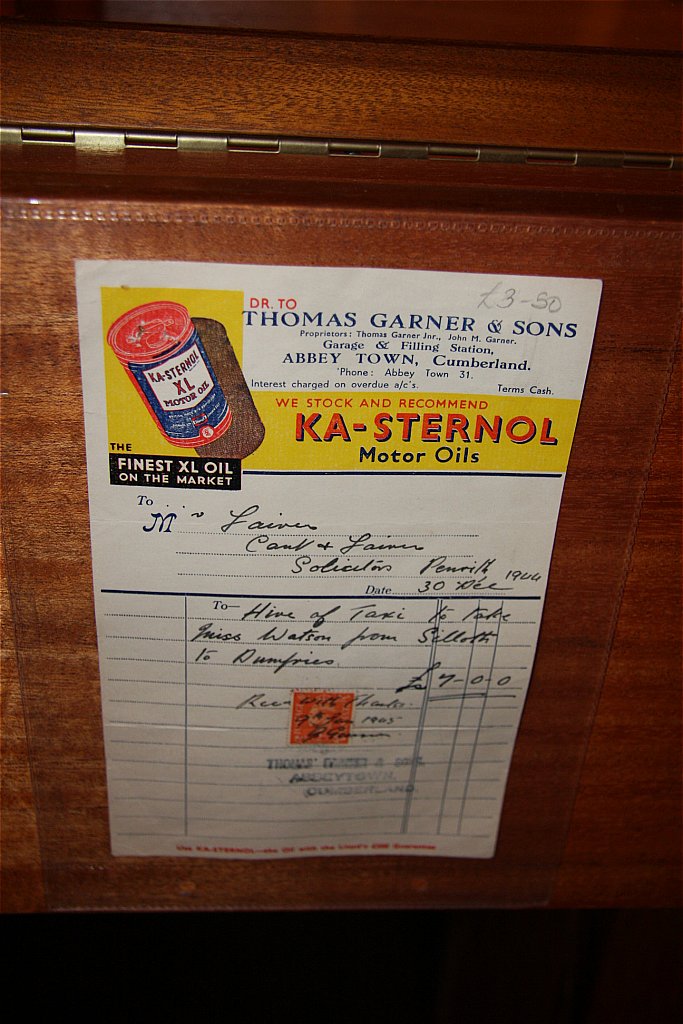 £3-50
DR. TO
THOMAS GARNER & SONS
Proprietors: Thomas Garner Jnr., John M. Garner.
Garage & Filling Station,
ABBEY TOWN, Cumberland.
'Phone: Abbey Town 31.
Interest charged on overdue a/c's. Terms Cash.
KA-STERNOL
XL
MOTOR OIL
THE
FINEST XL OIL
ON THE MARKET
WE STOCK AND RECOMMEND
KA-STERNOL
Motor Oils
To
Mr
Solicitors Penrith
Date 30 Dec 1944
To Hire of Taxi to take
Miss Watson from Silloth
to Dumfries
£7-0-0
Recd With Thanks
9th Jan 1945
THOMAS GARNER & SONS,
ABBEYTOWN,
CUMBERLAND.
Use KA-STERNOL—the Oil with the